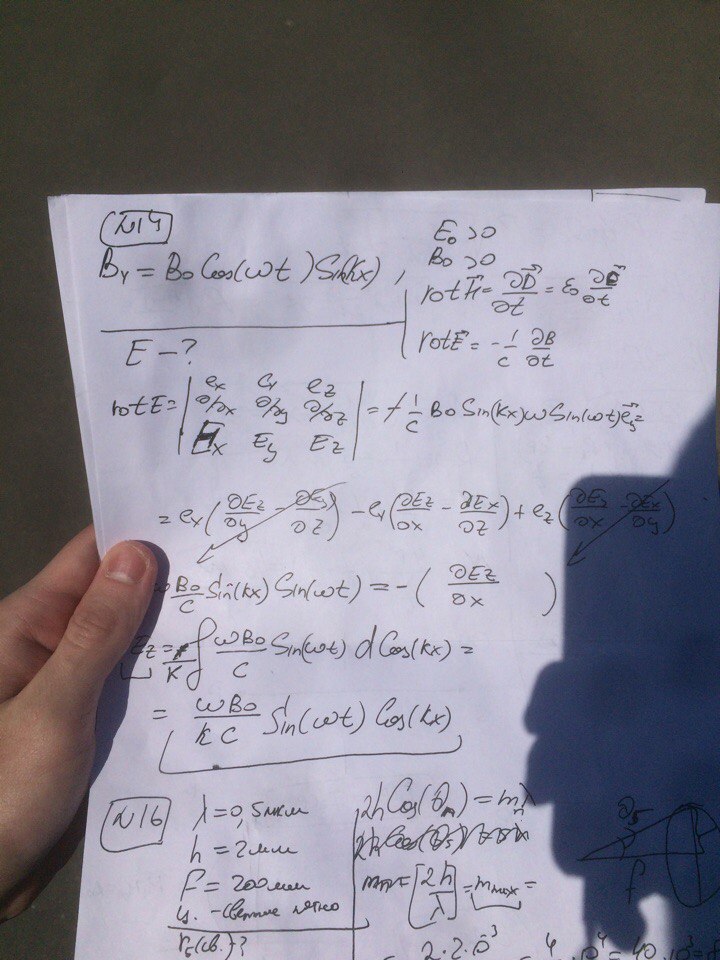 N14
B_y = B_0 Cos(ωt) Sin(kx),
E_0 > 0
B_0 > 0
rot H⃗ = ∂D⃗/∂t = ε_0 ∂E⃗/∂t
rot E⃗ = - 1/c ∂B/∂t
E - ?
rot E = | e_x e_y e_z ; ∂/∂x ∂/∂y ∂/∂z ; E_x E_y E_z | = + 1/c B_0 Sin(kx) ω Sin(ωt) e⃗_y =
= e_x (∂E_z/∂y - ∂E_y/∂z) - e_y (∂E_z/∂x - ∂E_x/∂z) + e_z (∂E_y/∂x - ∂E_x/∂y)
ωB_0/c Sin(kx) Sin(ωt) = - ( ∂E_z/∂x )
E_z = 1/k ∫ ωB_0/c Sin(ωt) d Cos(kx) =
= ωB_0/kc Sin(ωt) Cos(kx)
N16
λ = 0,5мкм
h = 2мм
F = 200мм
r_5(св.)?
2h Cos(θ_n) = m_n λ
[2h/λ] = m_max =
θ_5
f